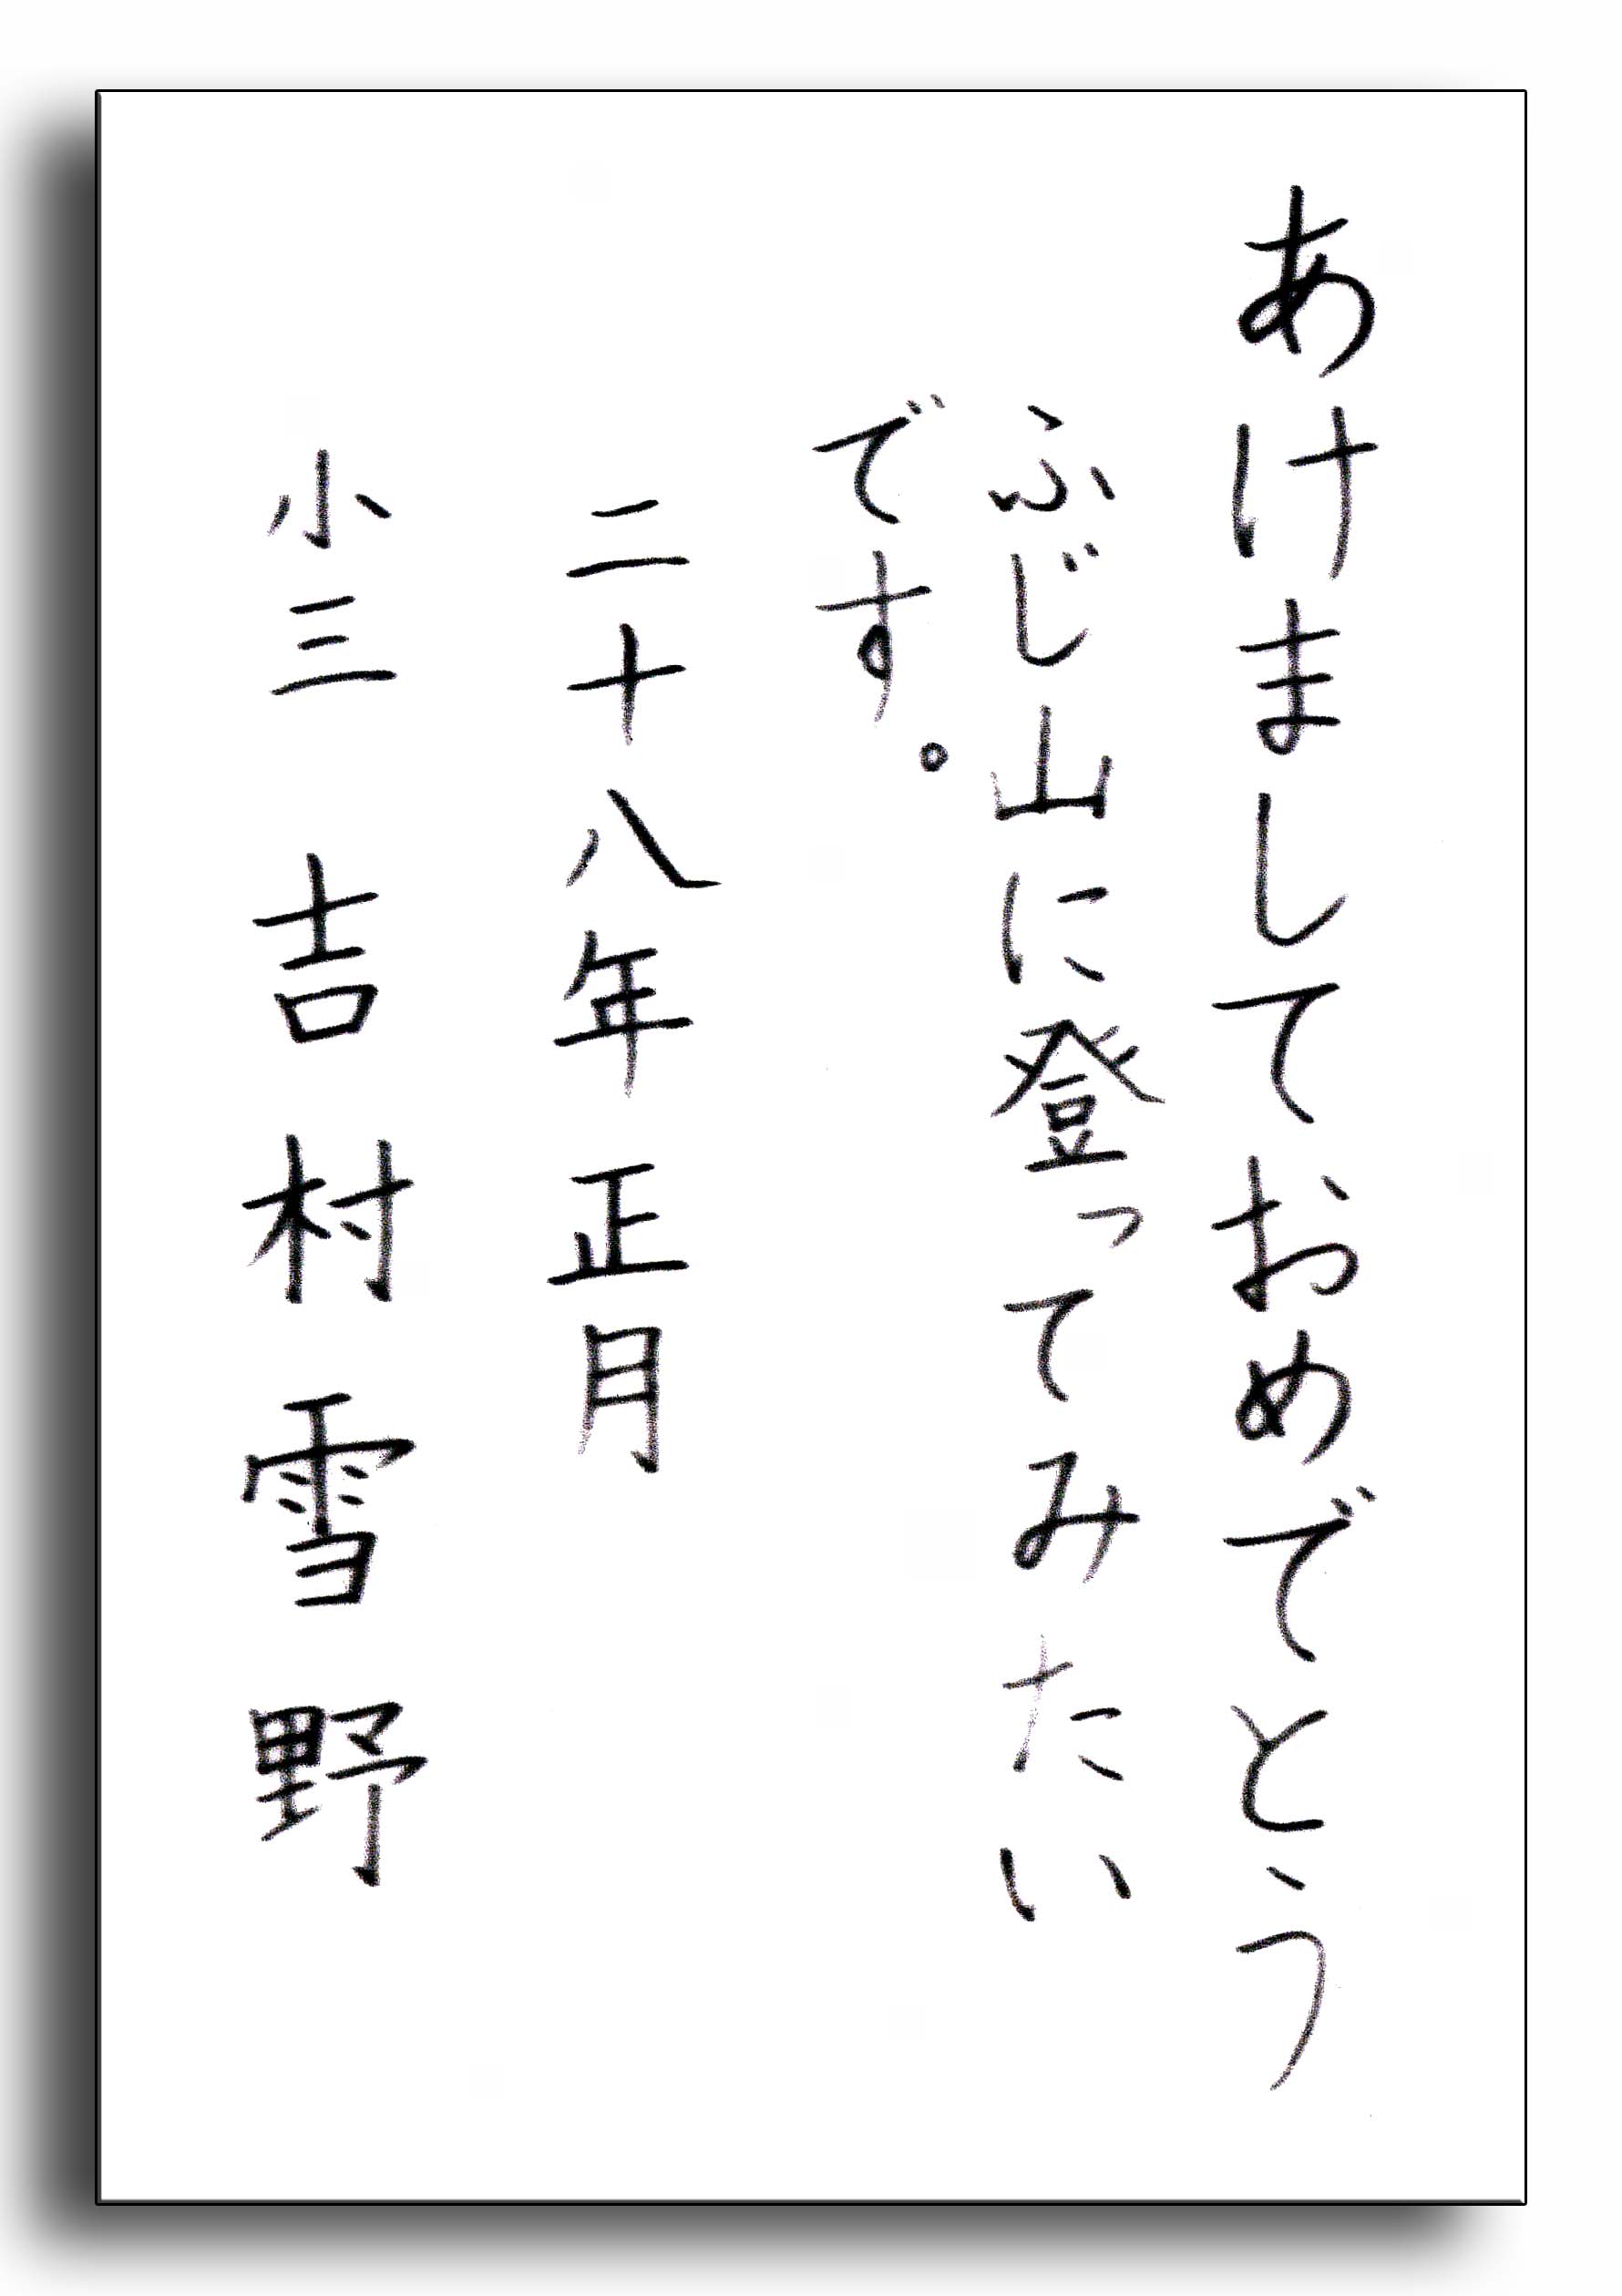 あけましておめでとう
ふじ山に登ってみたい
です。
二十八年 正月
小三 吉村雪野